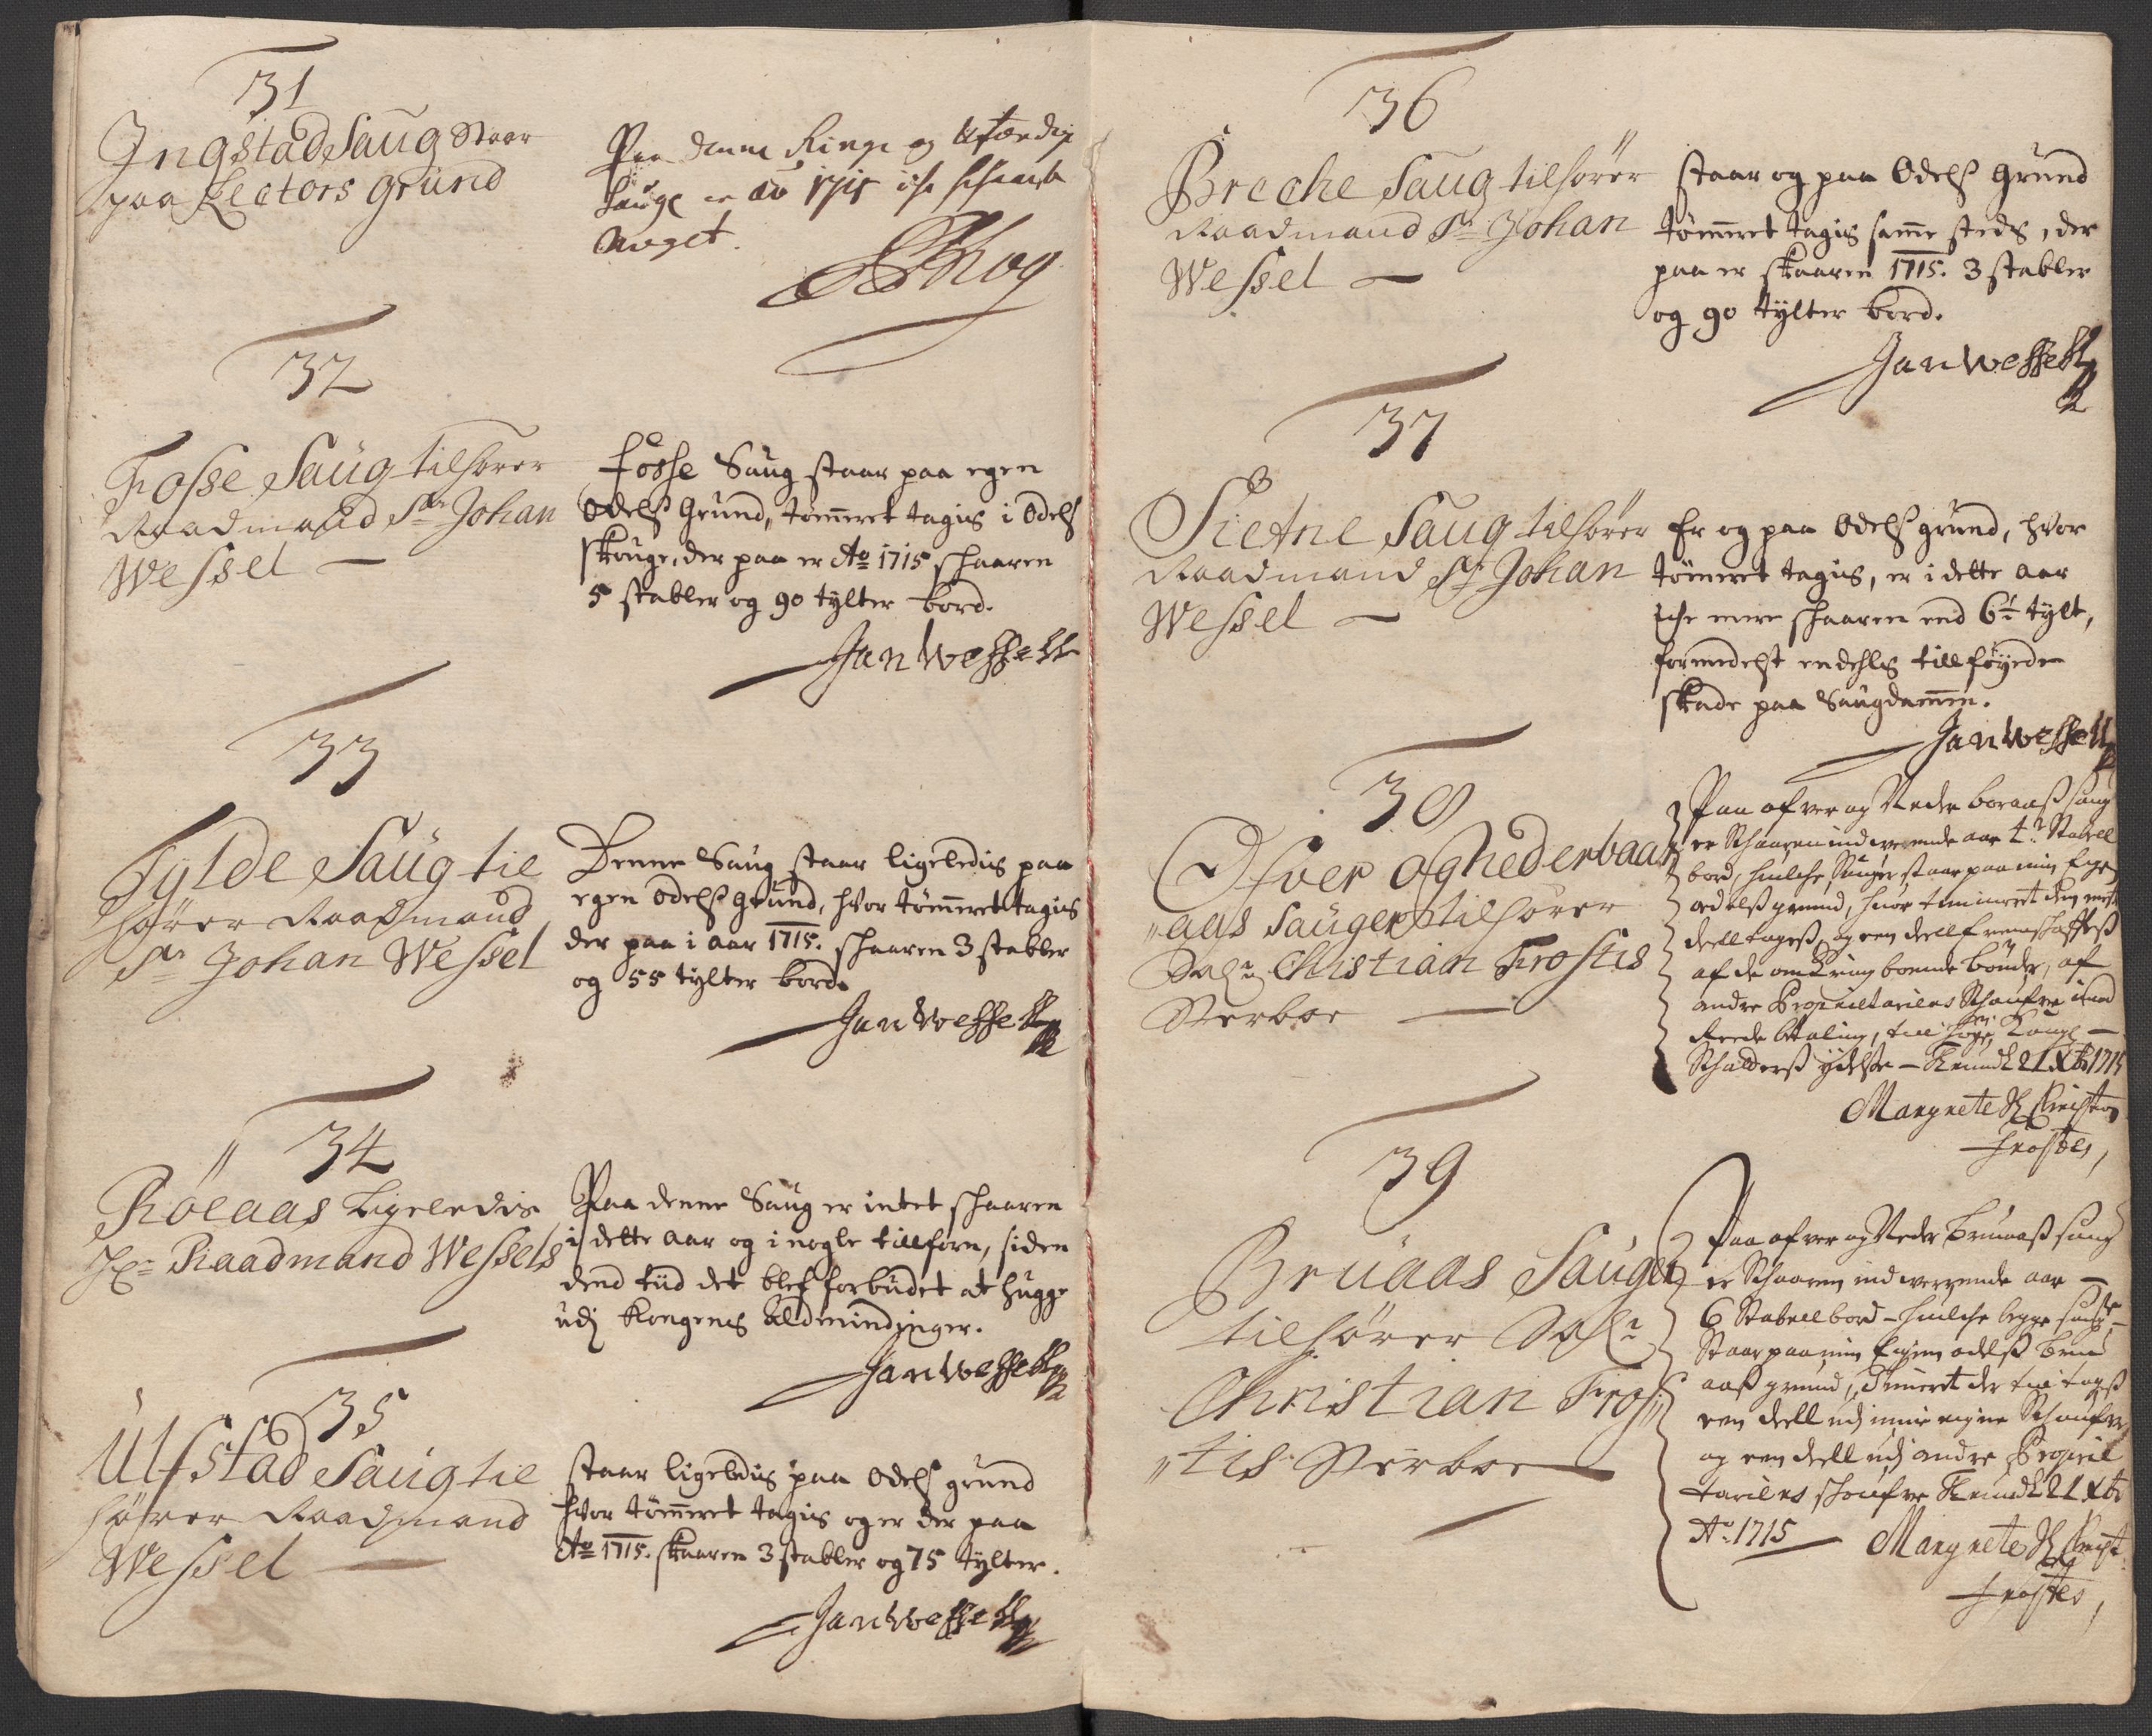 31
Ingstad Saug Staar
paa Lectors grund
Paa denne Ringe og Ufærdig
Sauge er ao 1715 iche schaaren
noget.
32
Fosse Saug tilhører
Raadmand Sr Johan
Wessel —
Fosse Saug staar paa egen
Odelß Grund, tømmeret tagis i Odelß
skouge, der paa er Ao 1715 schaaren
5 stabler og 90 tylter bord.
Jan Wessell
33
Fylde Saug til
hører Raadmand
Sr Johan Wessel
Denne Saug staar ligeledis paa
egen Odelß grund, hvor tømmeret tagis
der paa i aar 1715. schaaren 3 stabler
og 55 tylter bord.
Jan Wessell
34
Rølaas Ligeledis
Hr Raadmand Wessels
Paa denne Saug er intet schaaren
i dette aar og i nogle tillforn, siden
dend tiid det blef forbudet at hugge
udj Kongens Aldmindinger.
Jan Wessell
35
Ulfstad Saug til
hører Raadmand
Wessel —
staar ligeledis paa Odelß grund
hvor tømmeret tagis og er der paa
Ao 1715. skaaren 3 stabler og 75 tylter.
Jan Wessell
36
Breche Saug tilhører
Raadmand Sr Johan
Wessel —
staar og paa Odelß grund
tømmeret tagis samme steds, der
paa er skaaren 1715. 3 stabler
og 90 tylter bord.
Jan Wessell
37
Sietne Saug tilhører
Raadmand Sr Johan
Wessel —
Er og paa Odelß grund, hvor
tømeret tagis, er i dette aar
iche mere schaaren end 6½ tylt,
formedelst endehlis tillføyede
skade paa Saugdammen.
Jan Wessell
38
Ofver og Nederbaar
aas Sauger tilhører
Sal. Christian Frostis
Sterboe —
Paa ofver og Neder boraaß saug
er Schaaren indwerende aar Stabell
bord, huilche Sauger staar paa min Egen
odelß grund, huor timmeret den meste
deell tageß, og een deell fremschaffeß
af de omkring boende bønder, af
andre Proprietariers Schoufve imod
Reede betaling, till
Schulderß ydelse — Trundh 21 Xbr 1715
Margrete Sl Christen
Frostes,
39
Bruaas Sauger
tilhører Sal.
Christian Fros
tis Sterboe
Paa ofver og Neder Bruaaß saug
er Schaaren indwerende aar —
6 Stabell bord — huilche begge sauge
Staar paa min Eigen odelß Bru
aaß grund, Timeret der till tageß
een deell udj mine eigne Schoufve
og een deell udj andre Propriet
tariers schoufve Trundh 21 Xbr
Ao 1715 — Margrete Sl Christ
Frostes,